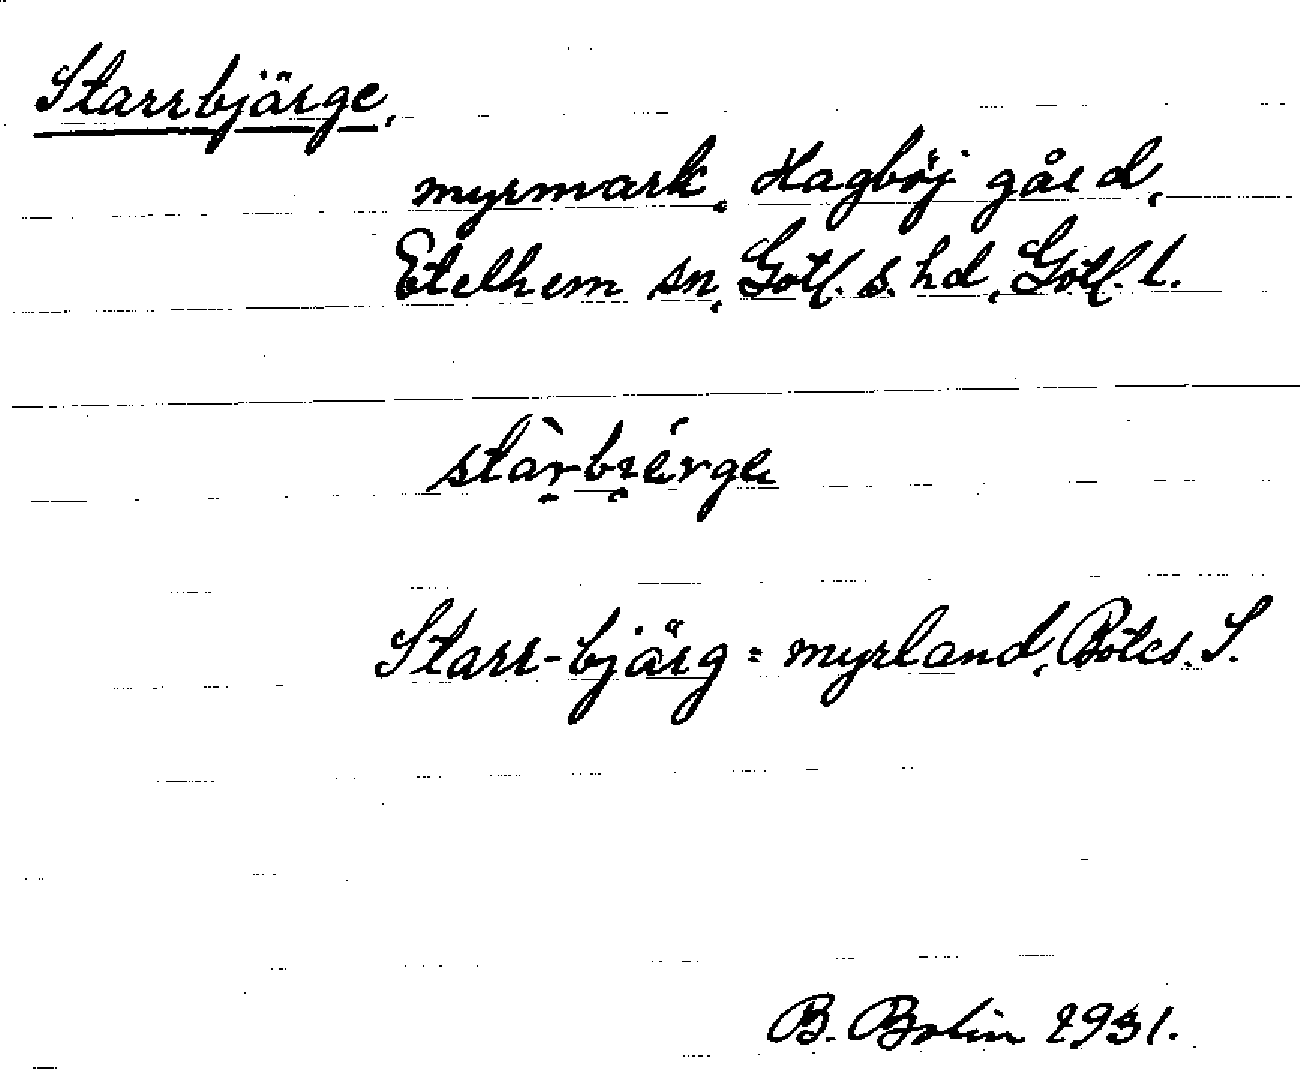 Starrbjärge,
myrmark, Hagböj gård,
Etelhem sn, Gotl. s. hd, Gotl. l.
stàrbi̯érge
Starr-bjärg = myrland, Botes. S.
B. Bolin 1931.